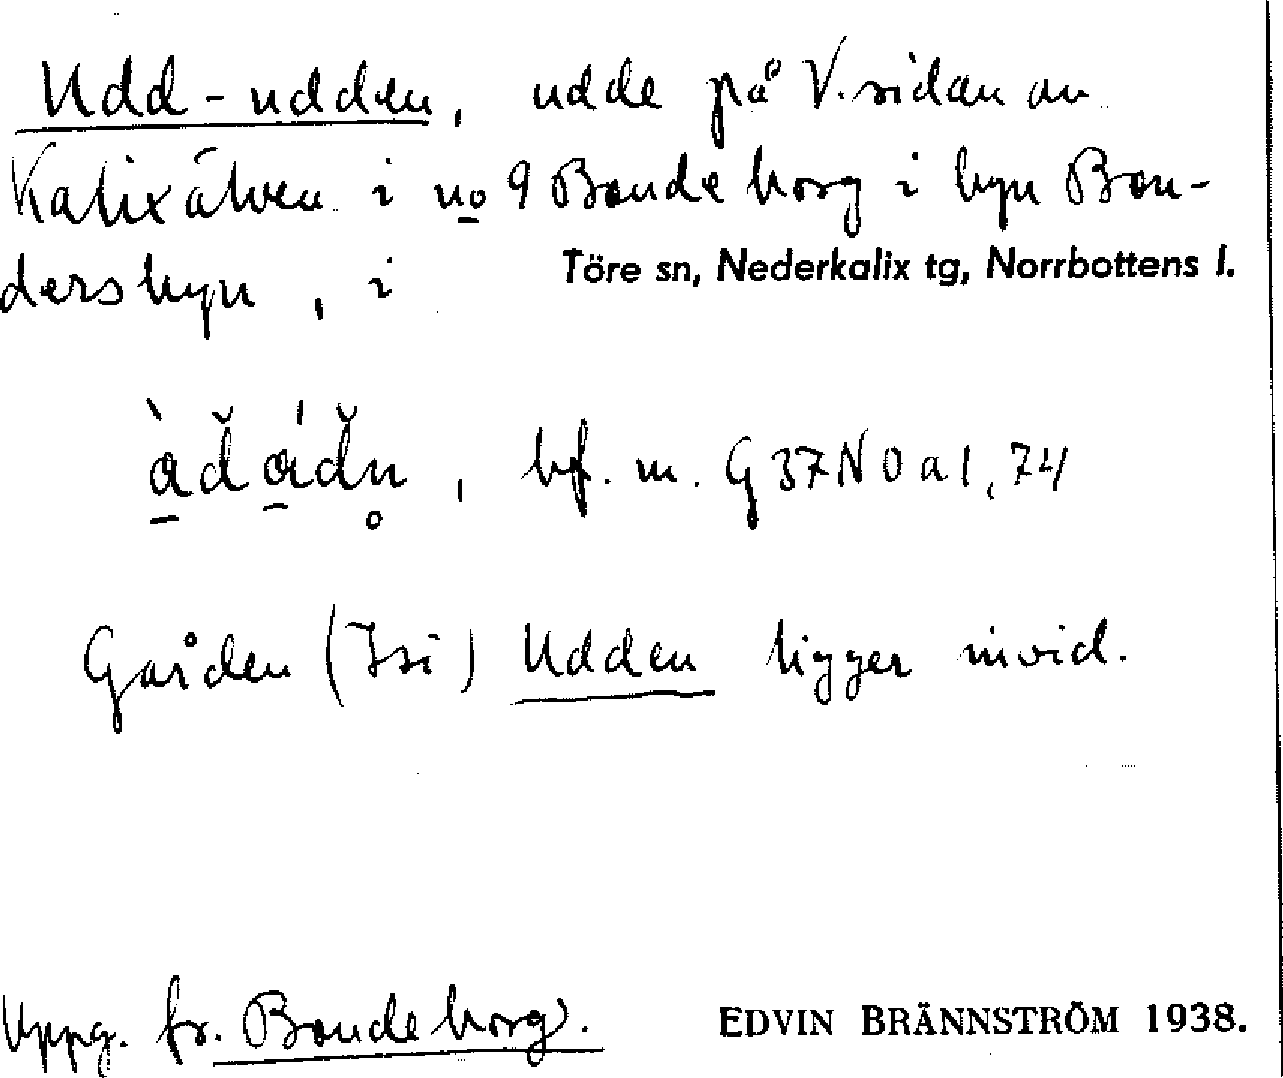 Udd-udden, udde på V.sidan av
Kalixälven i no 9 Bondeborg i byn Bon-
dersbyn, i Töre sn, Nederkalix tg, Norrbottens l.
bf. m. G37N0a1,74
Gården (Isi) Udden ligger invid.
Uppg. fr. Bondeborg. EDVIN BRÄNNSTRÖM 1938.